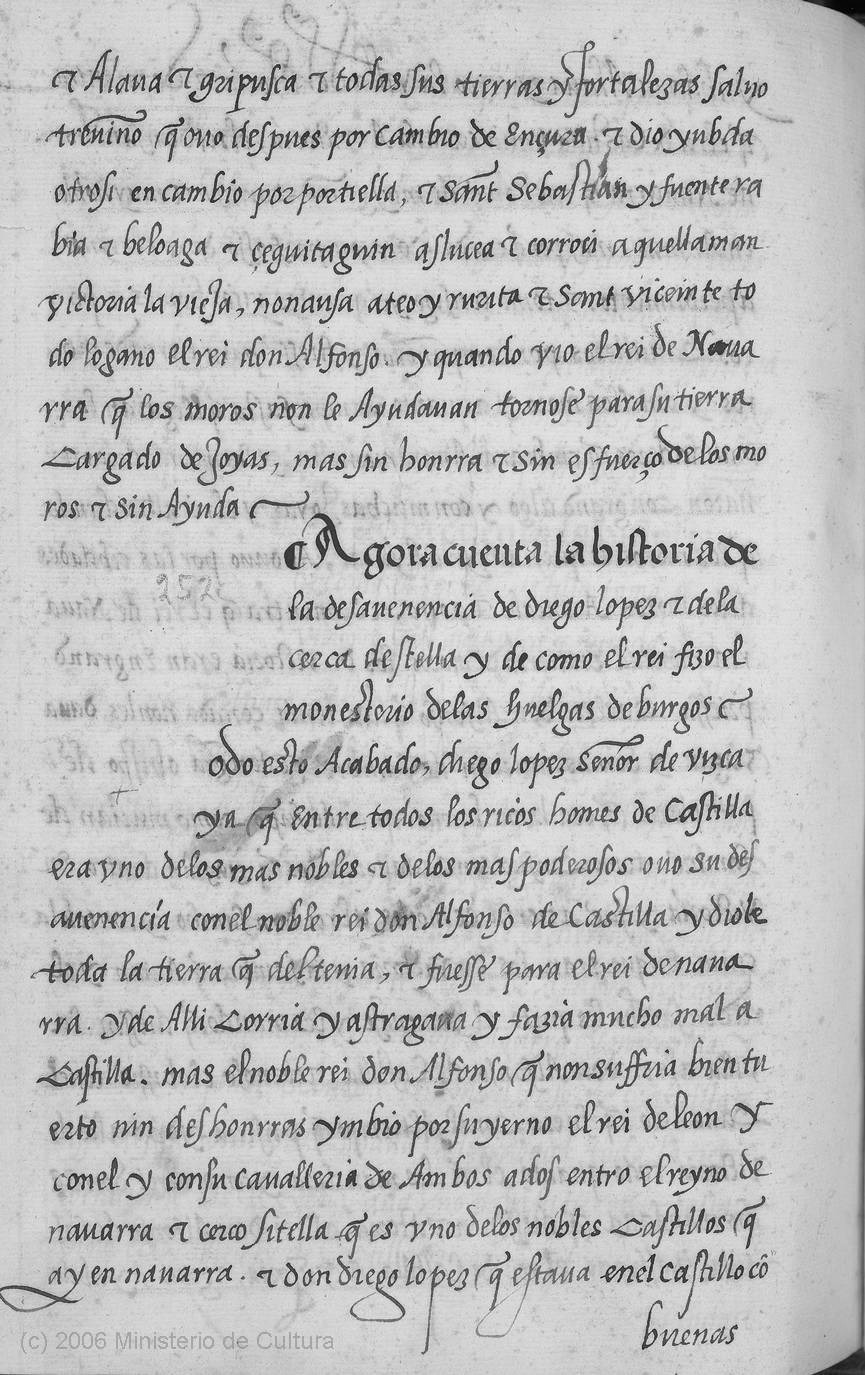 ⁊ Alaua ⁊ gripusca ⁊ todas sus tierras y fortalezas saluo
treuino q̃ ouo despues por cambio de Ençura. ⁊ dio yubda
otrosi en cambio por portiella, ⁊ Sant Sebastian y fuentera
bia ⁊ beloaga ⁊ çeguitaguin aslucea ⁊ corroei aquellaman
victoria la vieja, nonausa ateo y rurita ⁊ Sant viceinte to
do logano el rei don Alfonso. y quando vio el rei de Naua
rra q̃ los moros non le Ayudauan tornose para su tierra
Cargado de Joyas, mas sin honrra ⁊ sin esfuerço de los mo
ros ⁊ sin Ayuda
¶ Agora cuenta la historia de
la desauenencia de diego lopez ⁊ de la
cerca de stella y de como el rei fizo el
monestorio delas huelgas de burgos
odo esto Acabado, diego lopez señor de vizca
ya q̃ Entre todos los ricos homes de Castilla
era vno delos mas nobles ⁊ delos mas poderosos ouo su des
auenencía conel noble rei don Alfonso de Castilla y diole
toda la tierra q̃ del tenia, ⁊ fuesse para el rei de naua
rra. y de Alli Corria y astragaua y fazia mucho mal a
Castilla. mas el noble rei don Alfonso q̃ non suffria bien tu
erto nin deshonrras ymbio por su yerno el rei de leon y
conel y consu cavalleria de Ambos ados entro el reyno de
navarra ⁊ cerco sitella q̃ es vno delos nobles Castillos q̃
ay en navarra. ⁊ don diego lopez q̃ estaua enel Castillo cõ
buenas
252
(c) 2006 Ministerio de Cultura